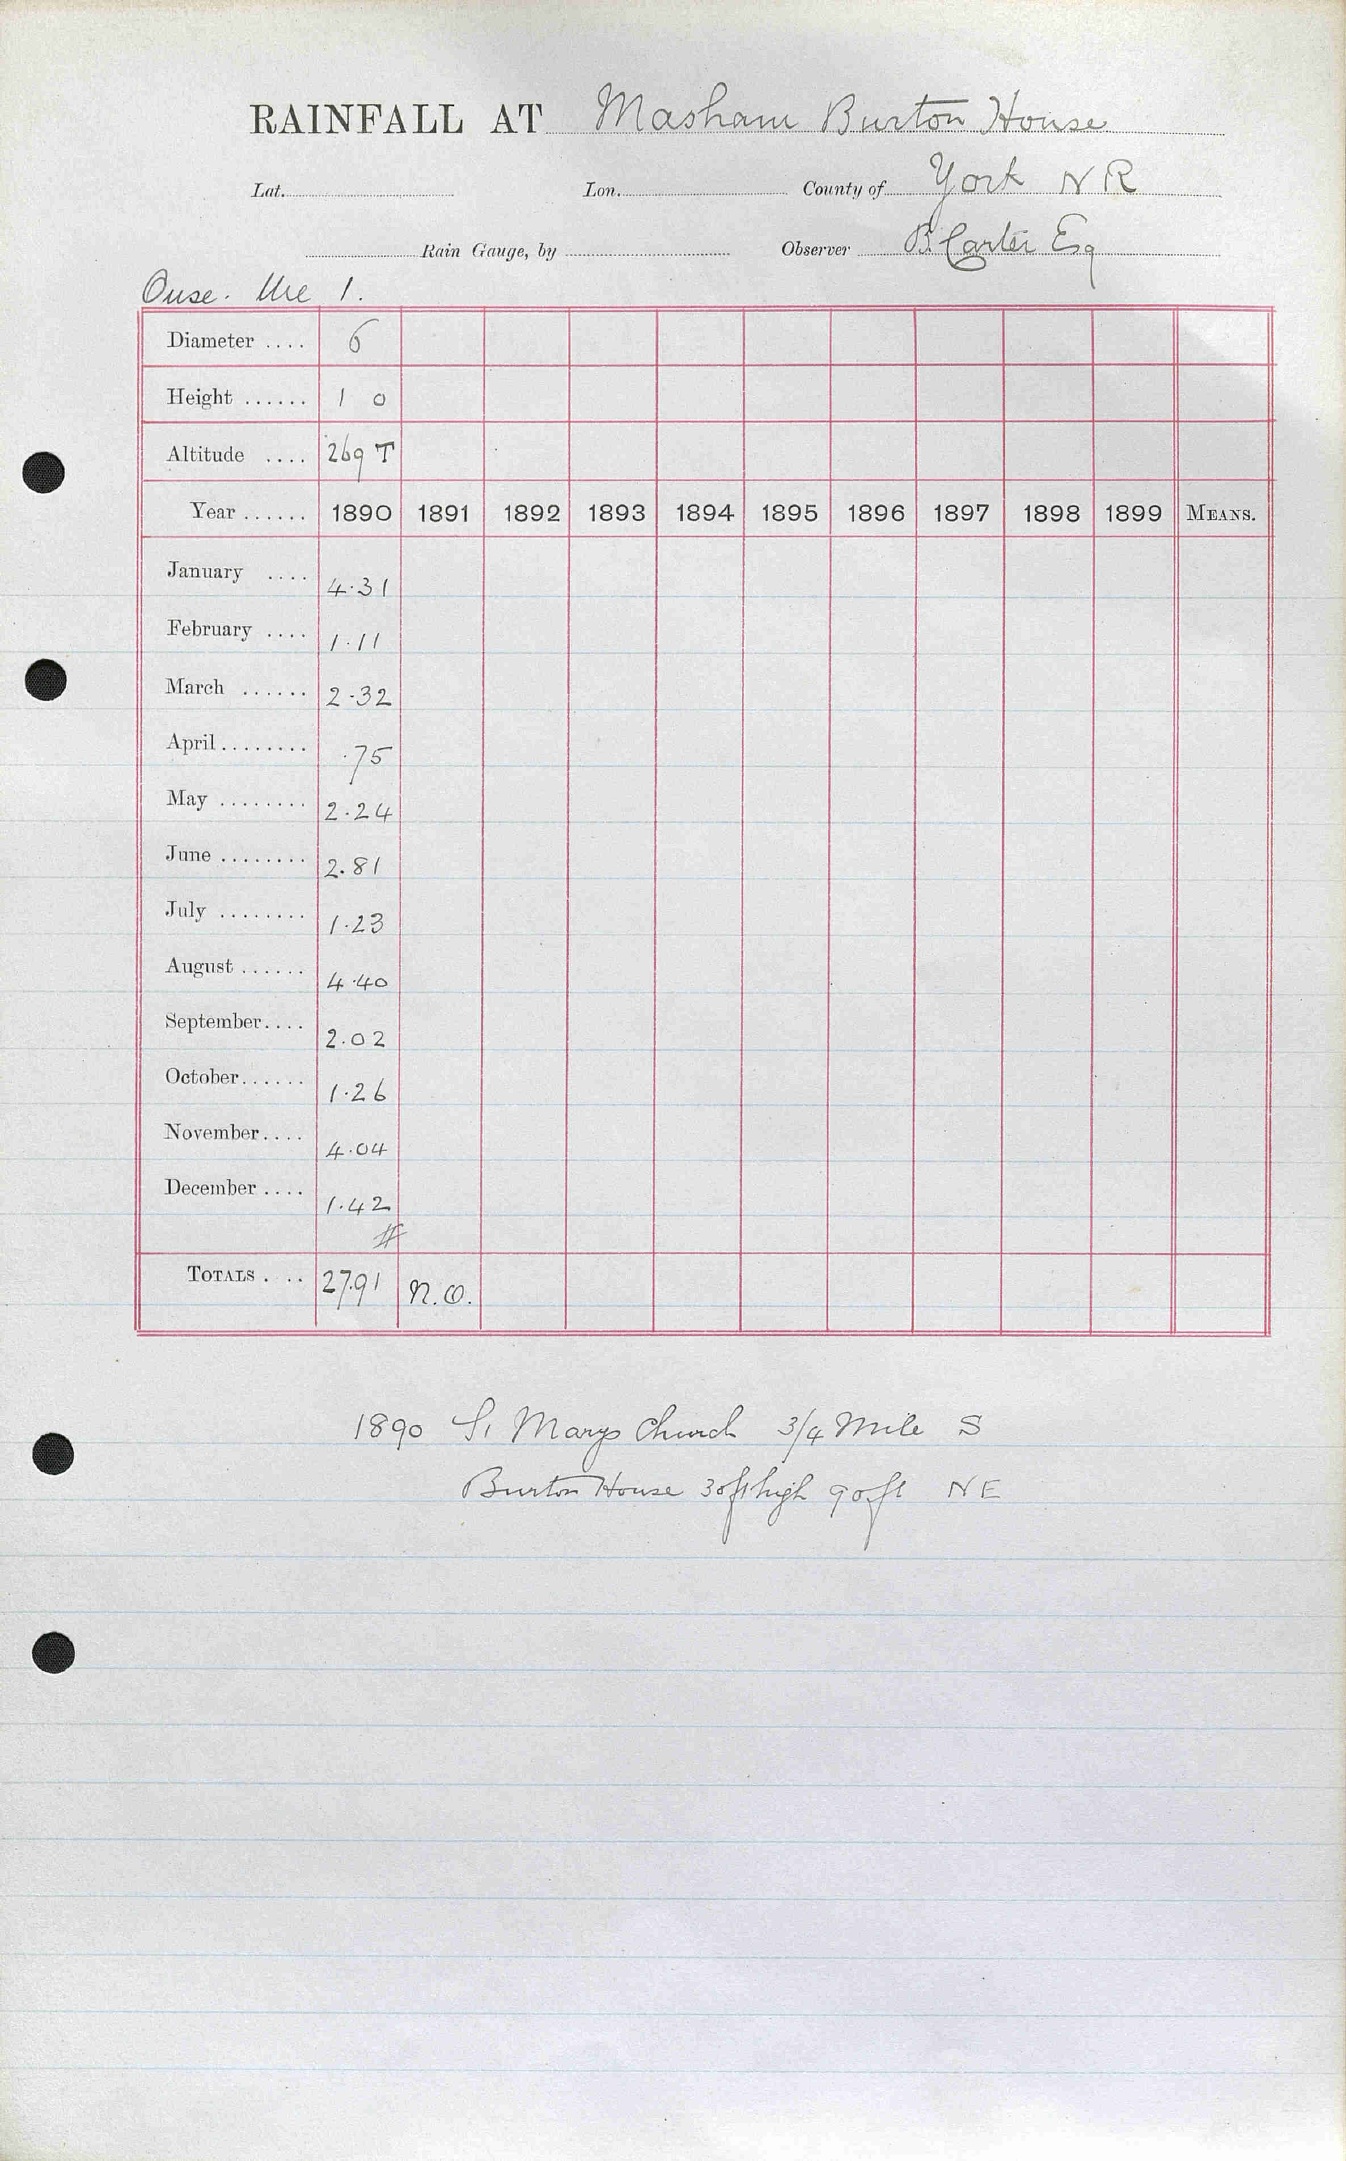 RAINFALL AT Masham Burton House
Lat. Lon. County of York N R
Rain Gauge, by Observer B. Carter Esq
Ouse. Ure 1.
Diameter .... 6
Height ...... 1 0
Altitude .... 269 T
Year ...... 1890 1891 1892 1893 1894 1895 1896 1897 1898 1899 MEANS.
January .... 4.31
February .... 1.11
March ...... 2.32
April ........ .75
May ........ 2.24
June ........ 2.81
July ........ 1.23
August ...... 4.40
September .... 2.02
October ...... 1.26
November .... 4.04
December .... 1.42
#
TOTALS . .. 27.91 N.O.
1890 St Marys Church 3/4 Mile S
Burton House 30ft high 90ft NE